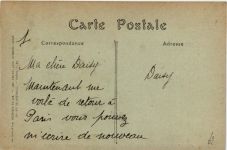 Carte Postale
Correspondance
Adresse
Ma chère Daisy
Daisy
Maintenant me
voilà de retour à
Paris vous pouvez
m'écrire de nouveau